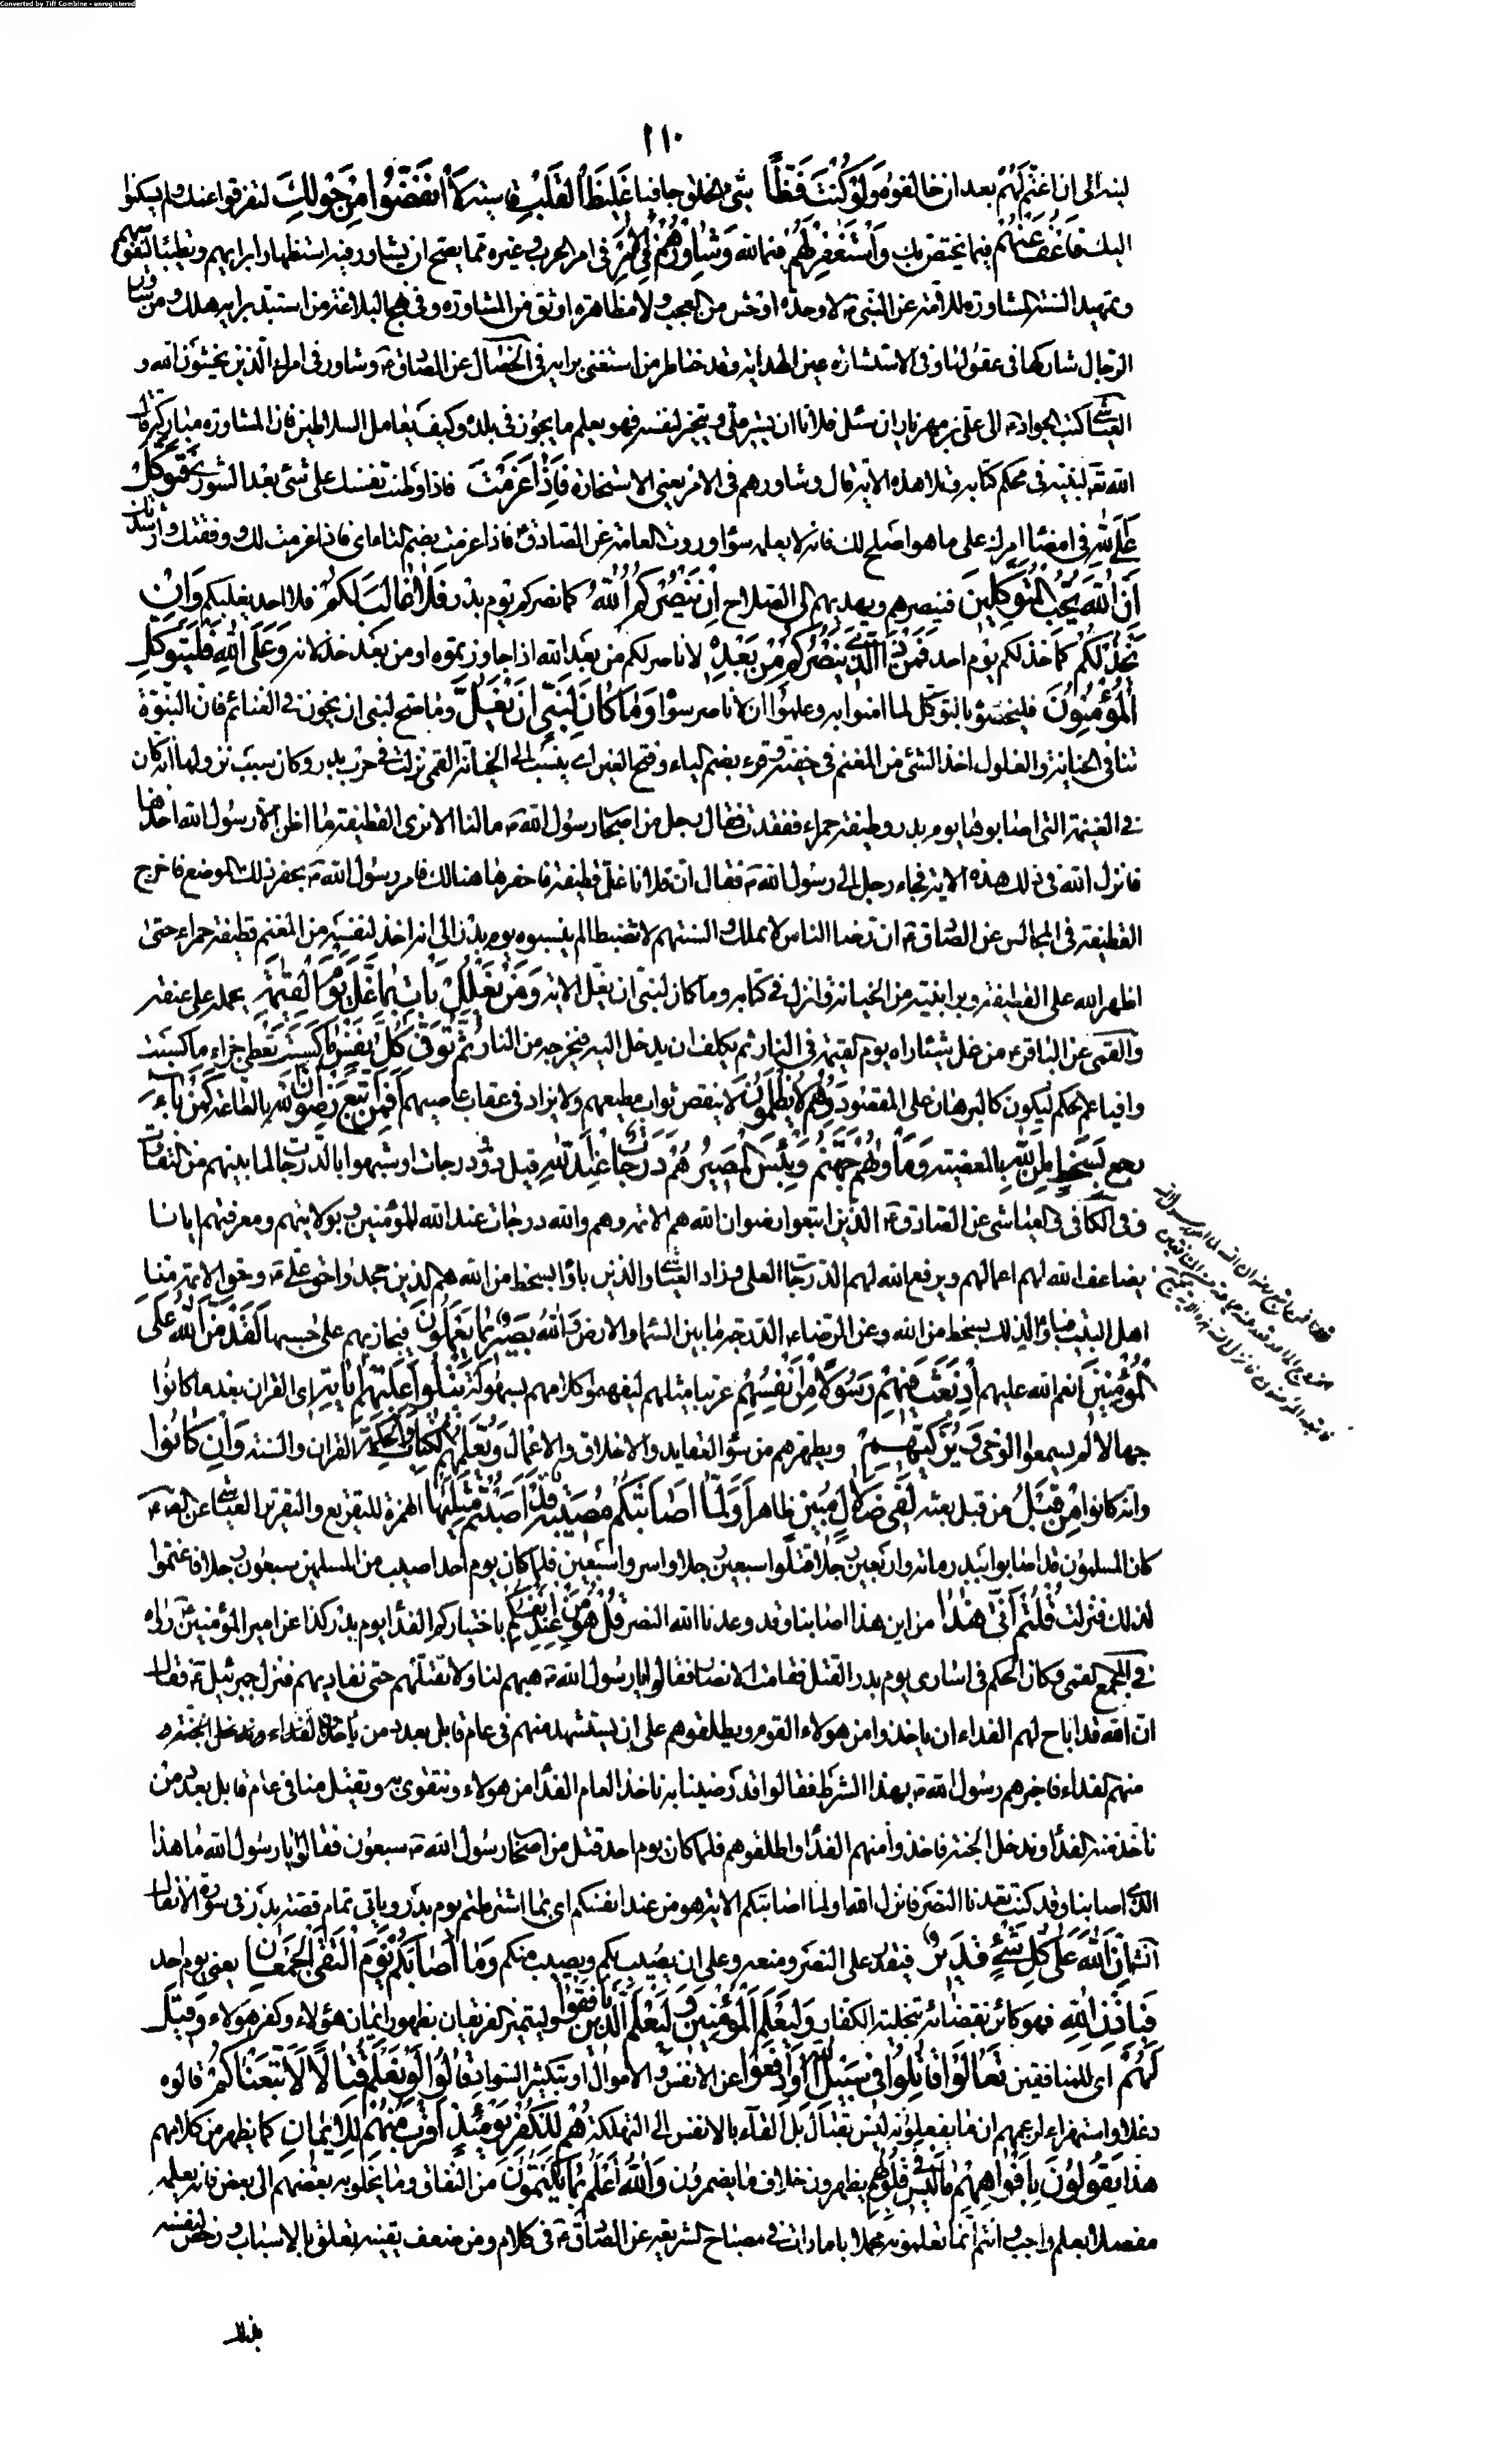 Converted by Tiff Combine - unregistered
١١٠
لهم بعد ان خالفوه وَلَوْ كُنْتَ فَظًّا سيّئ الخلق جافيا غَلِيظَ الْقَلْبِ قاسيه لَانْفَضُّوا مِنْ حَوْلِكَ لتفرقوا عنك ولم يسكنوا
اليك فَاعْفُ عَنْهُمْ فيما يختص بك وَاسْتَغْفِرْ لَهُمْ فيما لله وَشَاوِرْهُمْ فِي الْأَمْرِ في امر الحرب وغيره مما يصح ان يشاور فيه استظهارا برايهم وتطييبا لنفوسهم
وتمهيدا لسنة المشاورة للامة عن النبي ص لا وحدة اوحش من العجب ولا مظاهرة اوثق من المشاورة وفي نهج البلاغة من استبد برايه هلك ومن شاور
الرجال شاركها في عقولها وفي الاستشارة عين الهداية وقد خاطر من استغنى برايه في الخصال عن الصادق ع وشاور في امرك الذين يخشون الله و
العياشي كتب الجواد ع الى علي بن مهزيار ان سئل فلانا ان يشير علي ويتخير لنفسه فهو يعلم ما يجوز في بلده وكيف يعامل السلاطين فان المشاورة مباركة قال
الله تعالى لنبيه في محكم كتابه وتلا هذه الاية قال وشاورهم في الامر يعني الاستخارة فَإِذَا عَزَمْتَ فاذا وطنت نفسك على شئ بعد الشورى فَتَوَكَّلْ
عَلَى اللهِ في امضاء امرك على ما هو اصلح لك فانه لا يعلمه سواه وروت العامة عن الصادق ع فاذا عزمت بضم التاء اي فاذا عزمت لك ووفقتك وارشدتك
إِنَّ اللهَ يُحِبُّ الْمُتَوَكِّلِينَ فينصرهم ويهديهم الى الصلاح إِنْ يَنْصُرْكُمُ اللهُ كما نصركم يوم بدر فَلَا غَالِبَ لَكُمْ فلا احد يغلبكم وَإِنْ
يَخْذُلْكُمْ كما خذلكم يوم احد فَمَنْ ذَا الَّذِي يَنْصُرُكُمْ مِنْ بَعْدِهِ لا ناصر لكم من بعد الله اذا جاوزتموه او من بعد خذلانه وَعَلَى اللهِ فَلْيَتَوَكَّلِ
الْمُؤْمِنُونَ فليخصوه بالتوكل لما امنوا به وعلموا ان لا ناصر سواه وَمَا كَانَ لِنَبِيٍّ أَنْ يَغُلَّ وما صح لنبي ان يخون في الغنائم فان النبوة
تنافي الخيانة والغلول اخذ الشئ من المغنم في خفية وقرء بضم الياء وفتح الغين اي ينسب الى الخيانة القمي نزلت في حرب بدر وكان سبب نزولها انه كان
في الغنيمة التي اصابوها يوم بدر قطيفة حمراء ففقدت فقال رجل من اصحاب رسول الله ص ما لنا لا نرى القطيفة ما اظن الا رسول الله اخذها
فانزل الله في ذلك هذه الاية فجاء رجل الى رسول الله ص فقال ان فلانا غل قطيفة فاحفرها هنالك فامر رسول الله ص بحفر ذلك الموضع فاخرج
القطيفة في المجالس عن الصادق ع ان رضا الناس لا يملك والسنتهم لا تضبط الم ينسبوه يوم بدر الى انه اخذ لنفسه من المغنم قطيفة حمراء حتى
اظهره الله على القطيفة وبرا نبيه من الخيانة وانزل في كتابه وما كان لنبي ان يغل الاية وَمَنْ يَغْلُلْ يَأْتِ بِمَا غَلَّ يَوْمَ الْقِيٰمَةِ يحمله على عنقه
والقمي عن الباقر ع من غل شيئا راه يوم القيمة في النار ثم يكلف ان يدخل اليه فيخرجه من النار ثُمَّ تُوَفّٰى كُلُّ نَفْسٍ مَا كَسَبَتْ تعطى جزاء ما كسبت
وافيا عم الحكم ليكون كالبرهان على المقصود وَهُمْ لَا يُظْلَمُونَ لا ينقص ثواب مطيعهم ولا يزاد في عقاب عاصيهم أَفَمَنِ اتَّبَعَ رِضْوَانَ اللهِ بالطاعة كَمَنْ بَاءَ
رجع بِسَخَطٍ مِنَ اللهِ بالمعصية وَمَأْوٰيهُمْ جَهَنَّمُ وَبِئْسَ الْمَصِيرُ هُمْ دَرَجَاتٌ عِنْدَ اللهِ قيل ذوو درجات او شبهوا بالدرجات لما بينهم من التفاوت
وفي الكافي والعياشي عن الصادق ع الذين اتبعوا رضوان الله هم الائمة وهم والله درجات عند الله للمؤمنين وبولايتهم ومعرفتهم ايانا
يضاعف الله لهم اعمالهم ويرفع الله لهم الدرجات العلى وزاد العياشي والذين باؤا بسخط من الله هم الذين جحدوا حق علي ع وحق الائمة منا
اهل البيت فباؤا لذلك بسخط من الله وعن الرضا ع الدرجة ما بين السماء والارض وَاللهُ بَصِيرٌ بِمَا يَعْمَلُونَ فيجازيهم على حسبها لَقَدْ مَنَّ اللهُ عَلَى
الْمُؤْمِنِينَ انعم الله عليهم إِذْ بَعَثَ فِيهِمْ رَسُولًا مِنْ أَنْفُسِهِمْ عربيا مثلهم ليفهموا كلامهم بسهولة يَتْلُوا عَلَيْهِمْ اٰيَاتِهِ اي القران بعد ما كانوا
جهالا لم يسمعوا الوحي وَيُزَكِّيهِمْ ويطهرهم من سوء العقايد والاخلاق والاعمال وَيُعَلِّمُهُمُ الْكِتَابَ وَالْحِكْمَةَ القران والسنة وَإِنْ كَانُوا
وانه كانوا مِنْ قَبْلُ من قبل بعثه لَفِي ضَلَالٍ مُبِينٍ ظاهر أَوَلَمَّا أَصَابَتْكُمْ مُصِيبَةٌ قَدْ أَصَبْتُمْ مِثْلَيْهَا الهمزة للتقريع والتقرير العياشي عن الصادق ع
كان المسلمون قد اصابوا ببدر مائة واربعين رجلا قتلوا سبعين رجلا واسروا سبعين فلما كان يوم احد اصيب من المسلمين سبعون رجلا فاغتموا
لذلك فنزلت قُلْتُمْ أَنّٰى هٰذَا من اين هذا اصابنا وقد وعدنا الله النصر قُلْ هُوَ مِنْ عِنْدِ أَنْفُسِكُمْ باختياركم الفداء يوم بدر كذا عن امير المؤمنين ع رواه
في المجمع القمي وكان الحكم في اسارى يوم بدر القتل فقامت الانصار فقالوا يا رسول الله ص هبهم لنا ولا تقتلهم حتى نفاديهم فنزل جبرئيل ع فقال
ان الله قد اباح لهم الفداء ان ياخذوا من هؤلاء القوم ويطلقوهم على ان يستشهد منهم في عام قابل بعدد من ياخذون الفداء
منهم الفداء فاخبرهم رسول الله ص بهذا الشرط فقالوا قد رضينا به ناخذ العام الفداء من هؤلاء ونتقوى به ويقتل منا في عام قابل بعدد من
ناخذ منه الفداء وندخل الجنة فاخذوا منهم الفداء واطلقوهم فلما كان يوم احد قتل من اصحاب رسول الله ص سبعون فقالوا يا رسول الله ما هذا
الذي اصابنا وقد كنت تعدنا النصر فانزل الله اولما اصابتكم الاية هو من عند انفسكم اي بما اشترطتم يوم بدر وياتي تمام قصة بدر في سورة الانفال
انشاءالله إِنَّ اللهَ عَلَى كُلِّ شَيْءٍ قَدِيرٌ فيقدر على النصر ومنعه وعلى ان يصيب بكم ويصيب منكم وَمَا أَصَابَكُمْ يَوْمَ الْتَقَى الْجَمْعَانِ يعني يوم احد
فَبِإِذْنِ اللهِ فهو كائن بقضائه بتخلية الكفار وَلِيَعْلَمَ الْمُؤْمِنِينَ وَلِيَعْلَمَ الَّذِينَ نَافَقُوا وليتميز الفريقان بظهور ايمان هؤلاء وكفر هؤلاء وَقِيلَ
لَهُمْ اي للمنافقين تَعَالَوْا قَاتِلُوا فِي سَبِيلِ اللهِ أَوِ ادْفَعُوا عن الانفس والاموال او بتكثير السواد قَالُوا لَوْ نَعْلَمُ قِتَالًا لَاتَّبَعْنَاكُمْ قالوه
دغلا واستهزاء لزعمهم ان ما يفعلونه ليس بقتال بل القاء بالانفس الى التهلكة هُمْ لِلْكُفْرِ يَوْمَئِذٍ أَقْرَبُ مِنْهُمْ لِلْإِيمَانِ كما يظهر من كلامهم
هذا يَقُولُونَ بِأَفْوَاهِهِمْ مَا لَيْسَ فِي قُلُوبِهِمْ يظهرون خلاف ما يضمرون وَاللهُ أَعْلَمُ بِمَا يَكْتُمُونَ من النفاق وما يخلو به بعضهم الى بعض فانه يعلمه
مفصلا بعلم واجب وانتم انما تعلمونه مجملا بامارات في مصباح الشريعة عن الصادق ع في كلام ومن ضعف يقينه تعلق بالاسباب ورخص لنفسه
بذلك